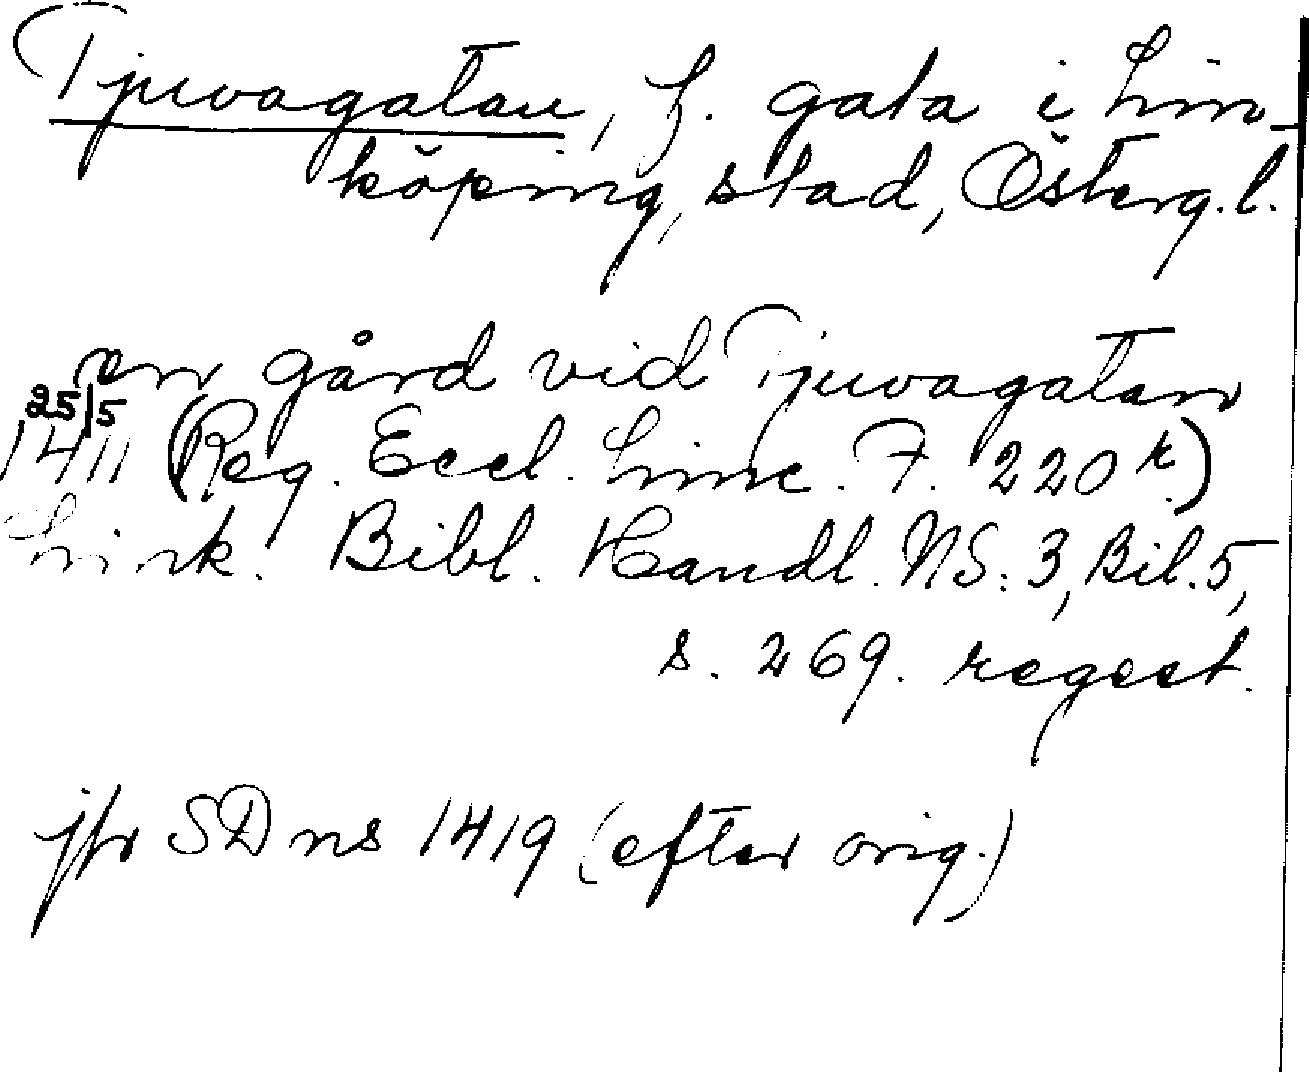 Tjuvagatan, f. gata i Lin-
köping, stad, Österg. l.
en gård vid Tjuvagatan
25/5
1411 (Reg. Eccl. Linc. F. 220 r.)
Link. Bibl. Handl. NS: 3, Bil. 5,
s. 269. regest.
jfr SD ns 1419 (efter orig.)